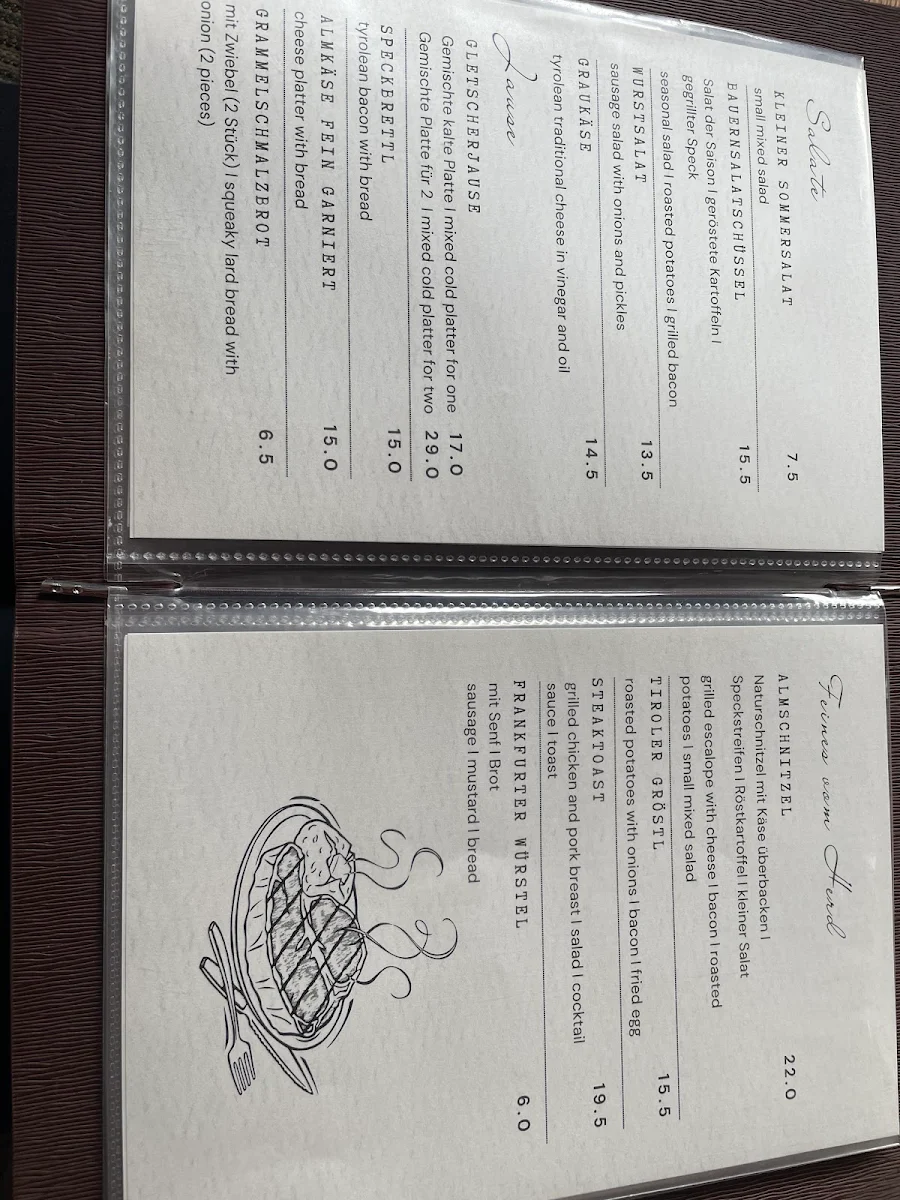 Salate
KLEINER SOMMERSALAT 7.5
small mixed salad
BAUERNSALATSCHÜSSEL 15.5
Salat der Saison | geröstete Kartoffeln |
gegrillter Speck
seasonal salad | roasted potatoes | grilled bacon
WURSTSALAT 13.5
sausage salad with onions and pickles
GRAUKÄSE 14.5
tyrolean traditional cheese in vinegar and oil
Jause
GLETSCHERJAUSE
Gemischte kalte Platte | mixed cold platter for one 17.0
Gemischte Platte für 2 | mixed cold platter for two 29.0
SPECKBRETTL 15.0
tyrolean bacon with bread
ALMKÄSE FEIN GARNIERT 15.0
cheese platter with bread
GRAMMELSCHMALZBROT 6.5
mit Zwiebel (2 Stück) | squeaky lard bread with
onion (2 pieces)
Feines vom Herd
ALMSCHNITZEL 22.0
Naturschnitzel mit Käse überbacken |
Speckstreifen | Röstkartoffel | kleiner Salat
grilled escalope with cheese | bacon | roasted
potatoes | small mixed salad
TIROLER GRÖSTL 15.5
roasted potatoes with onions | bacon | fried egg
STEAKTOAST 19.5
grilled chicken and pork breast | salad | cocktail
sauce | toast
FRANKFURTER WÜRSTEL 6.0
mit Senf | Brot
sausage | mustard | bread